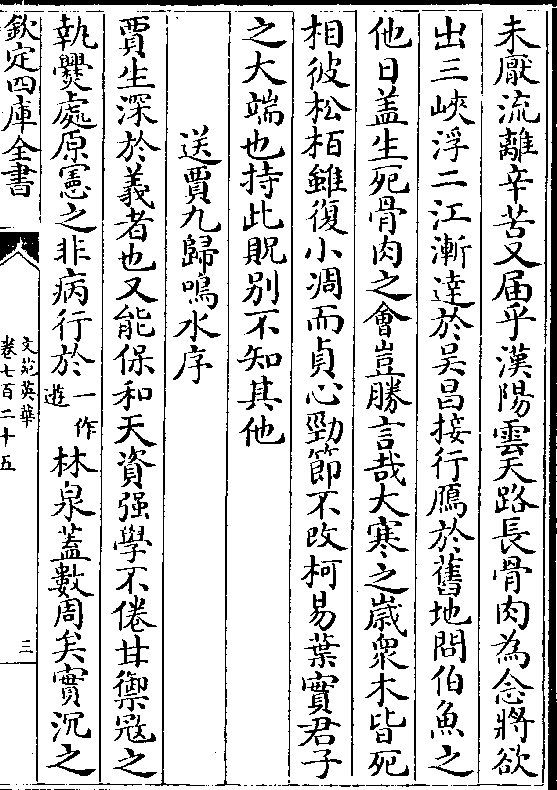 未厭流離辛苦又届乎漢陽雲天路長骨肉為念將欲
出三峽浮二江漸達於吴昌接行鴈於舊地問伯魚之
他日盖生死骨肉之會豈勝言哉大寒之嵗衆木皆死
相彼松栢雖復小凋而貞心勁節不改柯易葉實君子
之大端也持此贶别不知其他
送賈九歸鳴水序
賈生深於義者也又能保和天資强學不倦甘禦寇之
執爨處原憲之非病行於一作遊林泉蓋數周矣實沉之
欽定四庫全書
文苑英華
卷七百二十五
三